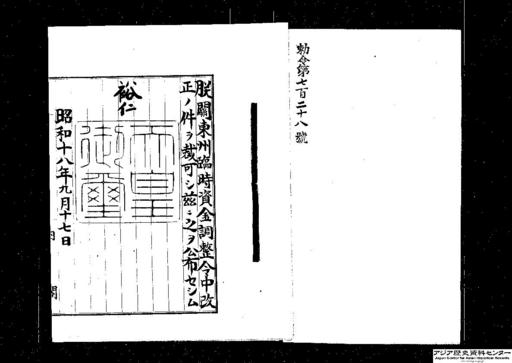 勅令第七百二十八號
朕關東州臨時資金調整令中改
正ノ件ヲ裁可シ玆ニ之ヲ公布セシム
裕仁
天皇
御璽
昭和十八年九月十七日
内閣
アジア歴史資料センター
Japan Center for Asian Historical Records